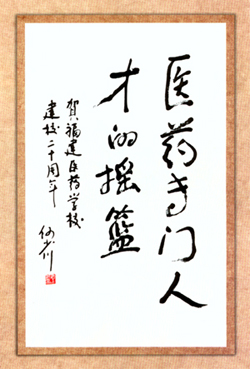 医药专门人
才的摇篮
贺福建医药学校
建校二十周年
何少川